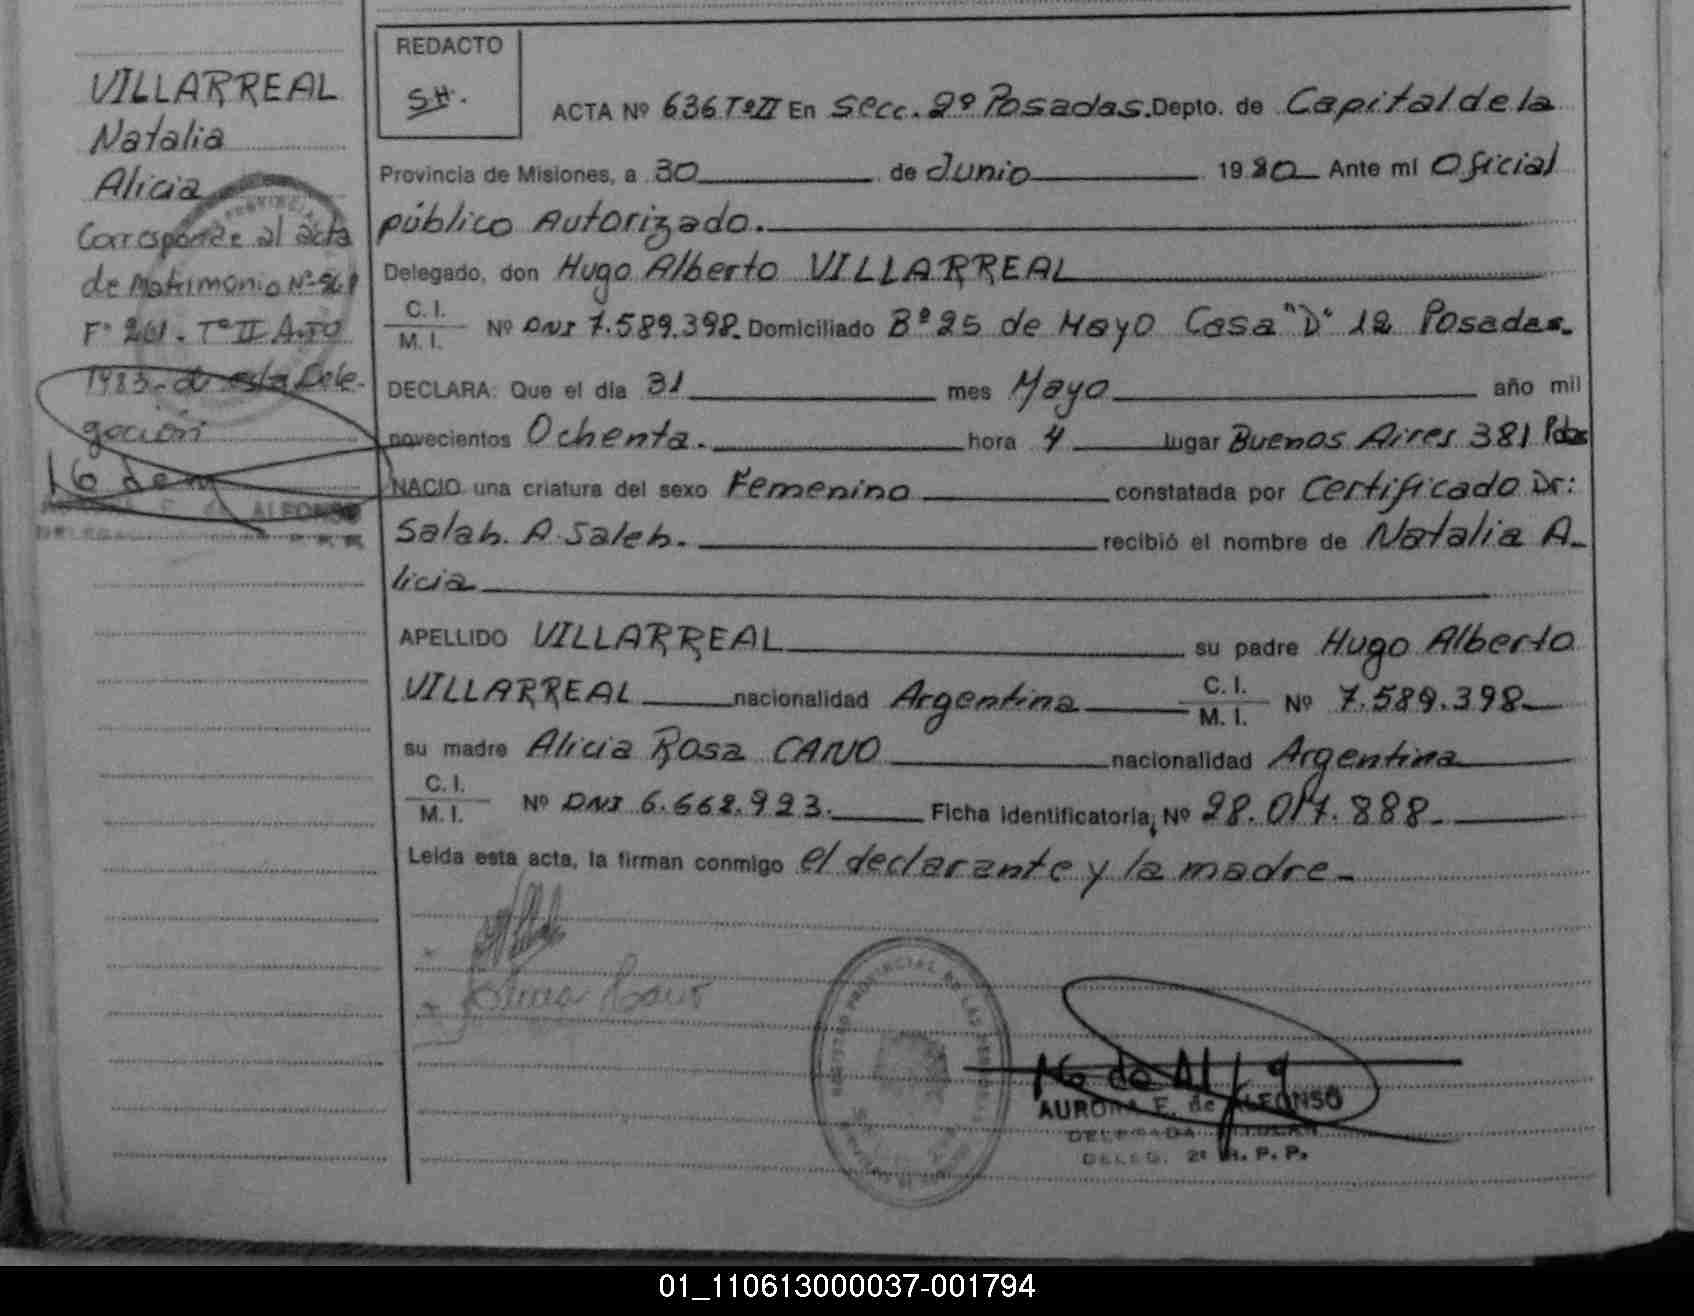 VILLARREAL
Natalia
Alicia
Corresponde al acta
de Matrimonio Nº
Fº 261. Tº II Año
1983. de esta Dele-
gación
REDACTO
S.H.
ACTA Nº 636 Tº II En Secc. 2º Posadas. Depto. de Capital de la
Provincia de Misiones, a 30 de Junio 1980 Ante mi Oficial
público Autorizado.
Delegado, don Hugo Alberto VILLARREAL
C. I.
M. I.
Nº DNI 7.589.398. Domiciliado Bº 25 de Mayo Casa "D" 12 Posadas.
DECLARA: Que el día 31 mes Mayo año mil
novecientos Ochenta. hora 4 lugar Buenos Aires 381 Pdas
NACIO una criatura del sexo Femenino constatada por Certificado Dr:
Salah. A. Saleh. recibió el nombre de Natalia A-
licia
APELLIDO VILLARREAL su padre Hugo Alberto
VILLARREAL nacionalidad Argentina C. I. M. I. Nº 7.589.398
su madre Alicia Rosa CANO nacionalidad Argentina
C. I.
M. I.
Nº DNI 6.662.923. Ficha identificatoria, Nº 28.017.888.
Leída esta acta, la firman conmigo el declarante y la madre.
AURORA E. de ALFONSO
DELEGADA TITULAR
DELEG. 2ª R. P. P.
01_110613000037-001794